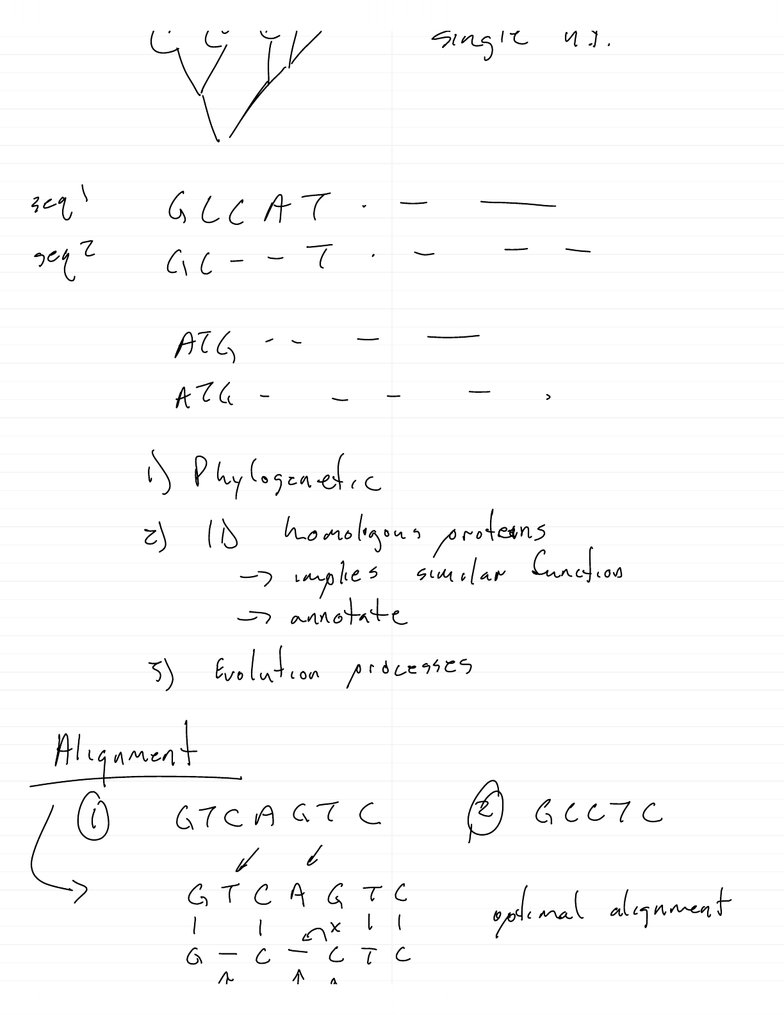 single
seq 1 G C C A T . — —
seq 2 G C - - T . - - -
A T G - - - —
A T G - - - - .
1) Phylogenetic
2) ID homologous proteins
→ implies similar function
→ annotate
3) Evolution processes
Alignment
① G T C A G T C ② G C C T C
G T C A G T C
| | x | |
optimal alignment
G - C - C T C